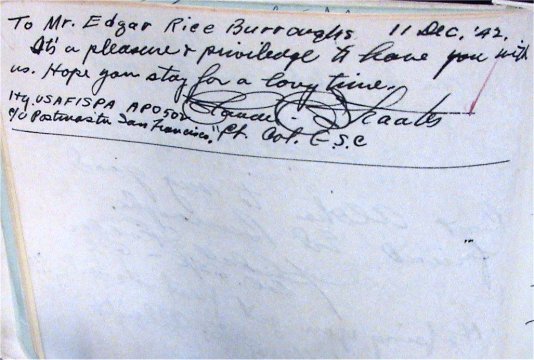 To Mr. Edgar Rice Burroughs 11 Dec. '42.
It's a pleasure & priviledge to have you with
us. Hope you stay for a long time.
Hq. USAFISPA APO 502
c/o Postmaster San Francisco, Lt. Col. C.S.C